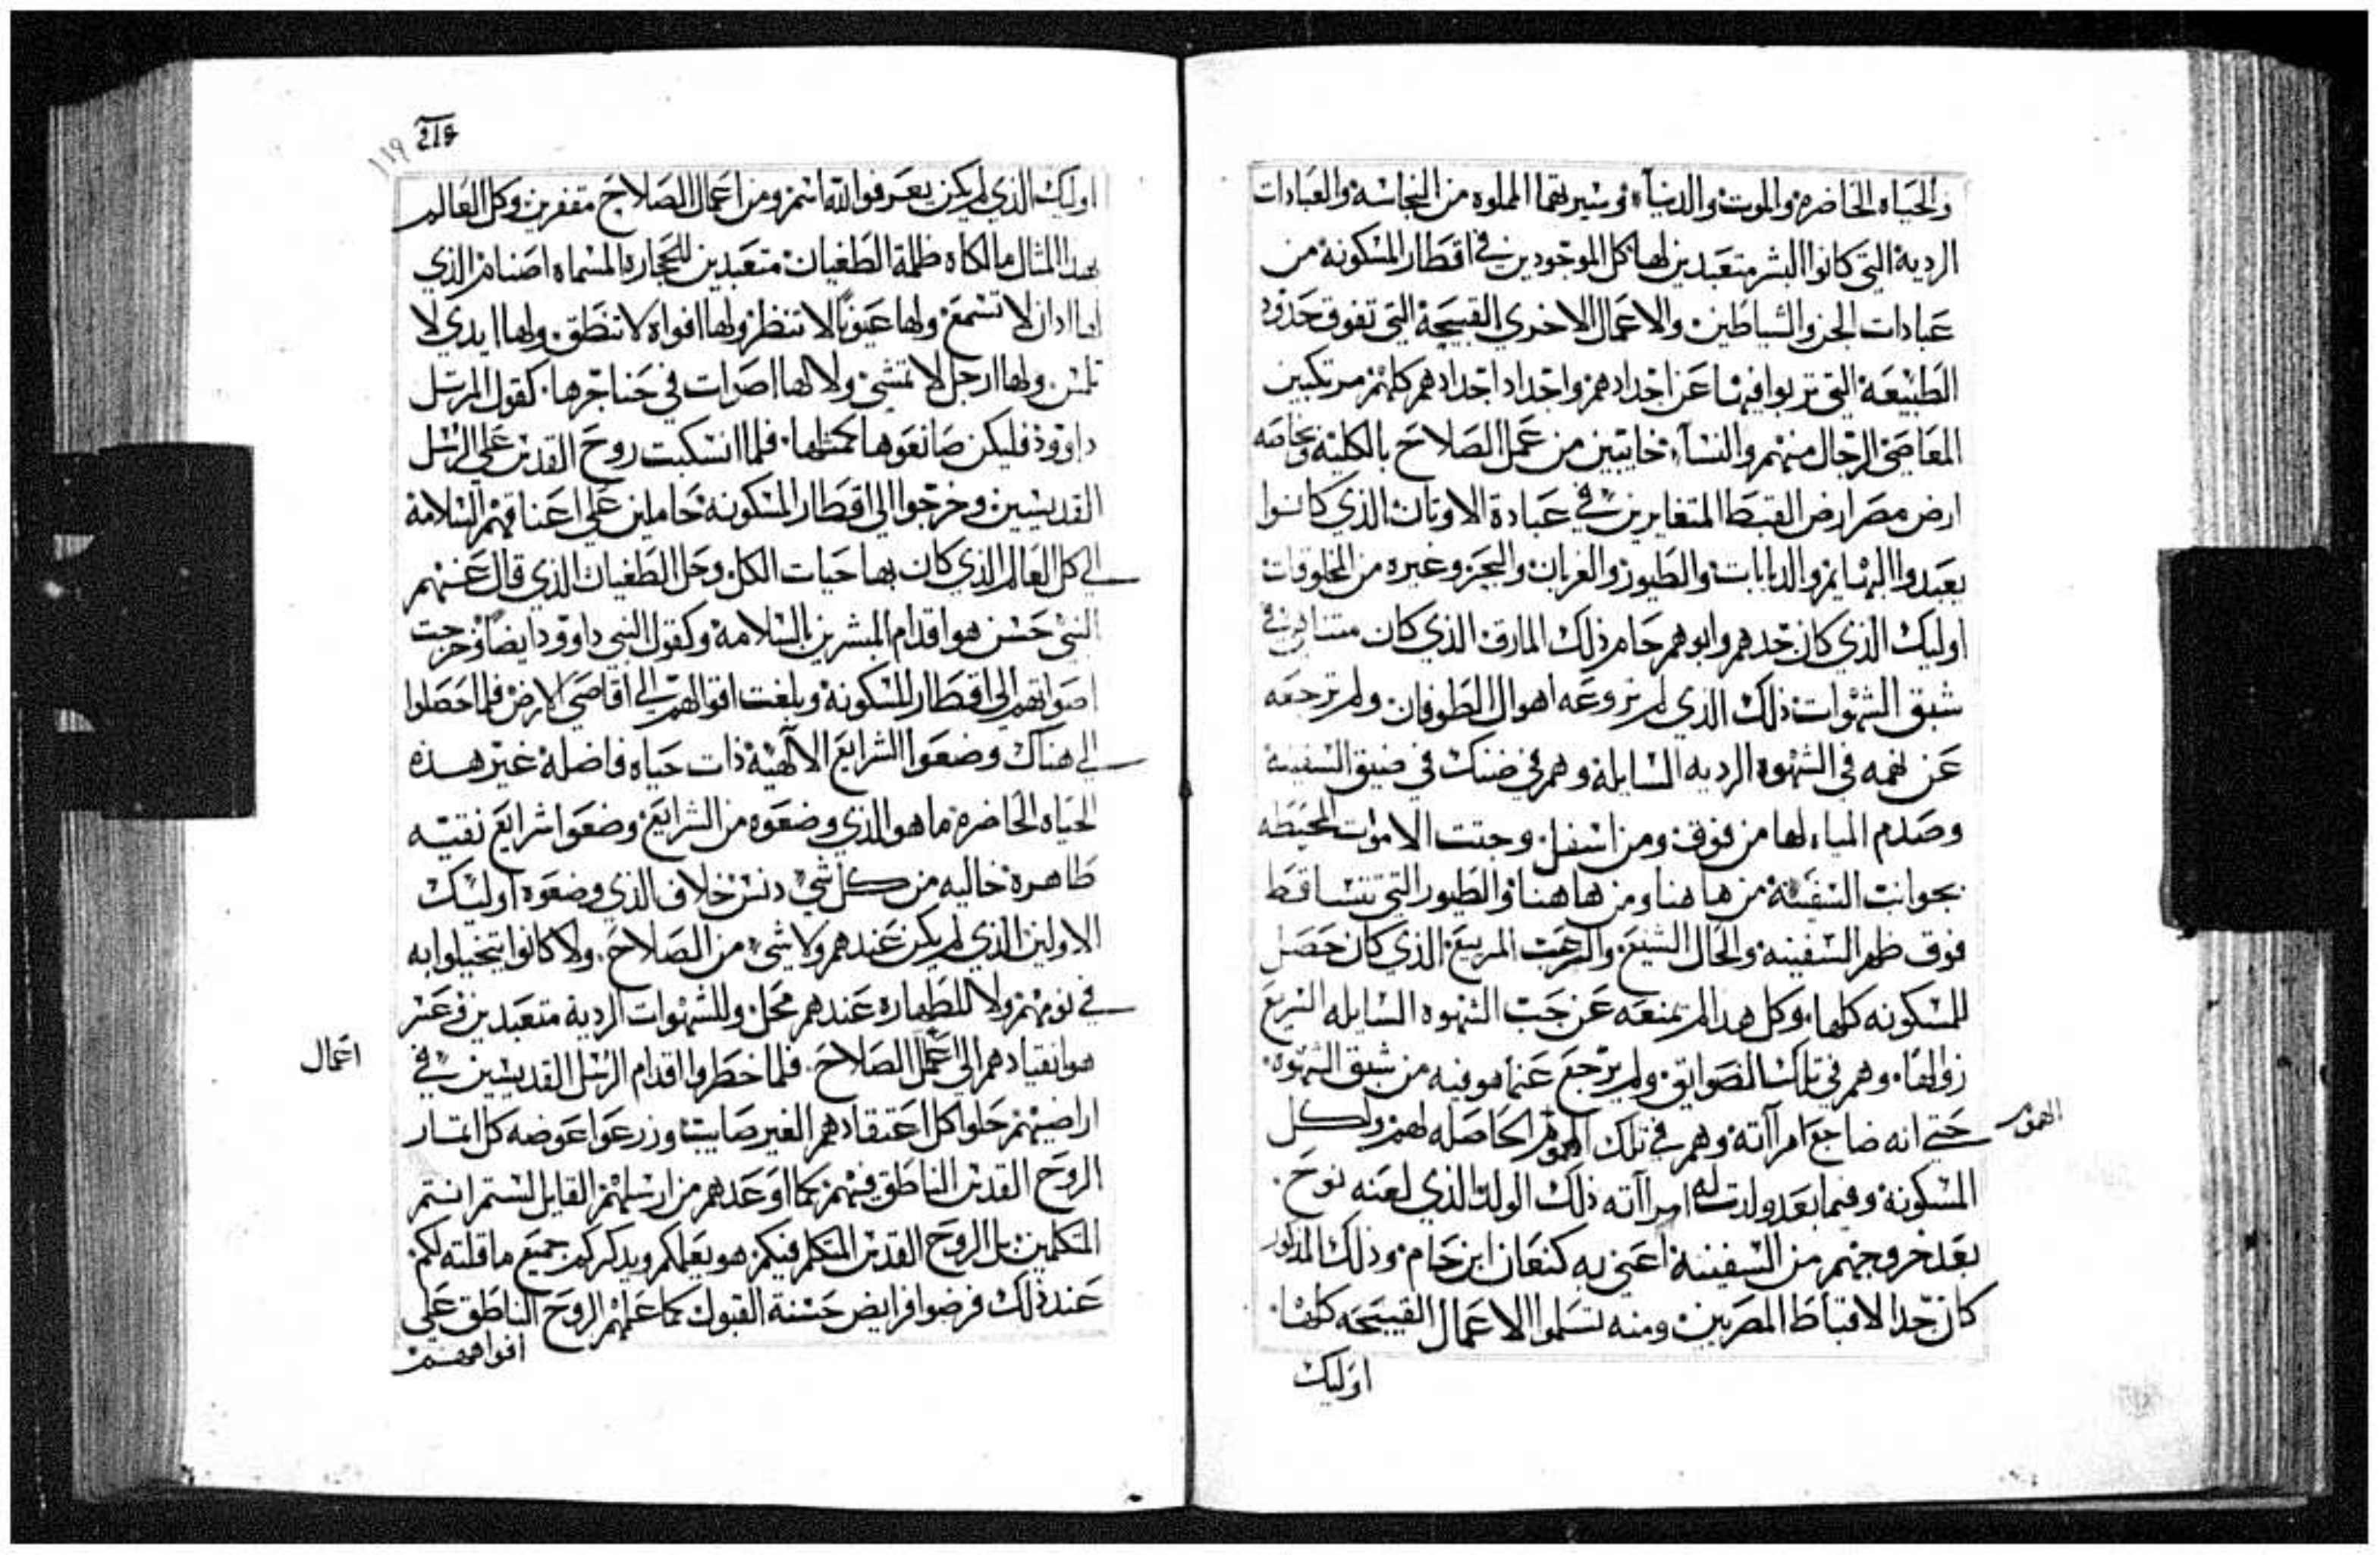 والحياه الحاضره والموت والدنياء وسيرتهما المملوه من النجاسه والعبادات
الرديه التي كانوا البشر متعبدين لها كل الموجودين في اقطار المسكونه من
عبادات الجن والشياطين والاعمال الاخري القبيحة التي تفوق حدود
الطبيعة التي تربوا فيها عن اجدادهم واجداد اجدادهم كلهم مرتكبين
المعاصي الرجال منهم والنساء خايبين من عمل الصلاح بالكلية وبخاصه
ارض مصر ارض القبط المتغايرين في عبادة الاوتان الذي كانوا
يعبدوا البهايم والدبابات والطيور والغربان والبحر وغيره من المخلوقات
اوليك الذي كان جدهم وابوهم حام ذلك المارق الذي كان في
شبق الشهوات ذلك الذي لم تروعه اهوال الطوفان ولم ترجعه
عن نهمه في الشهوه الرديه السايلة وهم في ضنك في ضيق السفينة
وصدم المياء لها من فوق ومن اسفل وجتت الاموات المحيطه
بجوانب السفينة من هاهنا ومن هاهنا والطيور التي تتساقط
فوق ظهر السفينه والحال الشنيع والرعب المريع الذي كان حصل
للمسكونه كلها وكل هدا لم تمنعه عن حب الشهوه السايله السريع
زوالها وهم في تلك الضوايق ولم يرجع عنما هو فيه من شبق الشهوه
حتي انه ضاجع امرااته وهم في تلك الهموم الحاصله لهم ولكل
المسكونة وفيما بعد ولدت له امرااته ذلك الولد الذي لعنه نوح
بعد خروجهم من السفينة اعني به كنعان ابن حام وذلك المذكور
كان جد الاقباط المصريين ومنه تسلموا الاعمال القبيحه كلها
اوليك
219
١١٩
اوليك الذي لم يكن يعرفوا الله اسم ومن اعمال الصلاح مقفرين وكل العالم
بهدا المثال مالكاه ظلمة الطغيان متعبدين للحجاره المسماه اصنام الذي
لها ادان لا تسمع ولها عيونا لا تنظر ولها افواه لا تنطق ولها ايدي لا
تلمس ولها ارجل لا تمشي ولا لها اصوات في حناجرها كقول المرتل
داوود فليكن صانعوها كمثلها فلما انسكبت روح القدس علي الرسل
القديسين وخرجوا الي اقطار المسكونه حاملين علي اعناقهم السلامة
الي كل العالم الذي كان بها حيات الكل وحل الطغيان الذي قال عنهم
النبي حسن هو اقدام المبشرين بالسلامة وكقول النبي داوود ايضا وخرجت
اصواتهم الي اقطار المسكونة وبلغت اقوالهم الي اقاصي الارض فلما حصلوا
الي هناك وضعوا الشرايع الالهية ذات حياه فاضلة غير هذه
الحياه الحاضره ما هو الذي وضعوه من الشرايع وضعوا شرايع نقيه
طاهرة خاليه من كل شي دنس خلاف الذي وضعوه اوليك
الاولين الذي لم يكن عندهم ولا شي من الصلاح ولا كانوا يتخيلوا به
في نومهم ولا للطهاره عندهم محل وللشهوات الردية متعبدين وعسر
هو انقيادهم الي عمل الصلاح فلما خطروا اقدام الرسل القديسين في
اعمال
اراضيهم حلوا كل اعتقادهم الغير صايب وزرعوا عوضه كل اتمار
الروح القدس الناطق فيهم كما اوعدهم من ارسلهم القايل لستم انتم
المتكلمين بل الروح القدس المتكلم فيكم هو يعلمكم ويدكركم جميع ما قلته لكم
عند ذلك فرضوا فرايض حسنة القبول كما علمهم الروح الناطق علي
افواههم